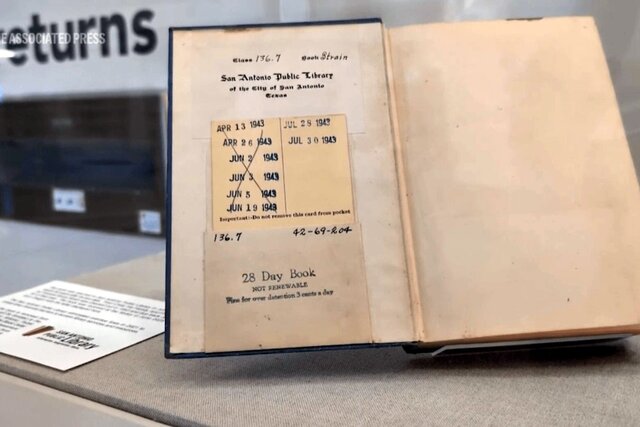 eturns
E ASSOCIATED PRESS
Class 136.7 Book Strain
San Antonio Public Library
of the City of San Antonio
Texas
APR 13 1943 JUL 28 1943
APR 26 1943 JUL 30 1943
JUN 2 1943
JUN 3 1943
JUN 5 1943
JUN 19 1943
Important:-Do not remove this card from pocket
136.7 42-69-204
28 Day Book
NOT RENEWABLE
Fine for over detention 3 cents a day
SAN ANTONIO